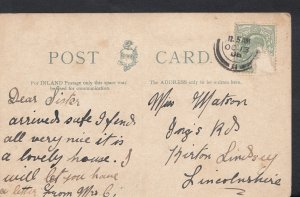 POST CARD.
For INLAND Postage only this space may be used for communication.
The ADDRESS only to be written here.
Dear Sister
arrived safe I find
all very nice it is
a lovely house. I
will let you have
a letter from Mrs C.
Miss Watson
Rd
Kirton Lindsey
Lincolnshire